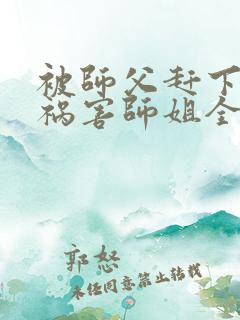 被師父赶下
祸害師姐全
郭怒
未经同意禁止转载